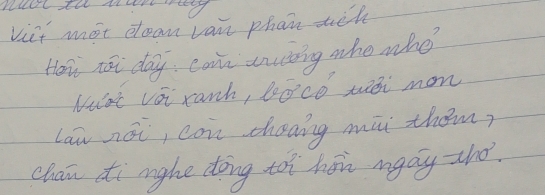 Viết một đoạn văn phân tích
Hồn tôi đây: con đường nho nhỏ
Nước với xanh, bờ cỏ tươi non
Lâu rồi, còn thoảng mùi thơm,
chân đi nghe động tới hồn ngây thơ.